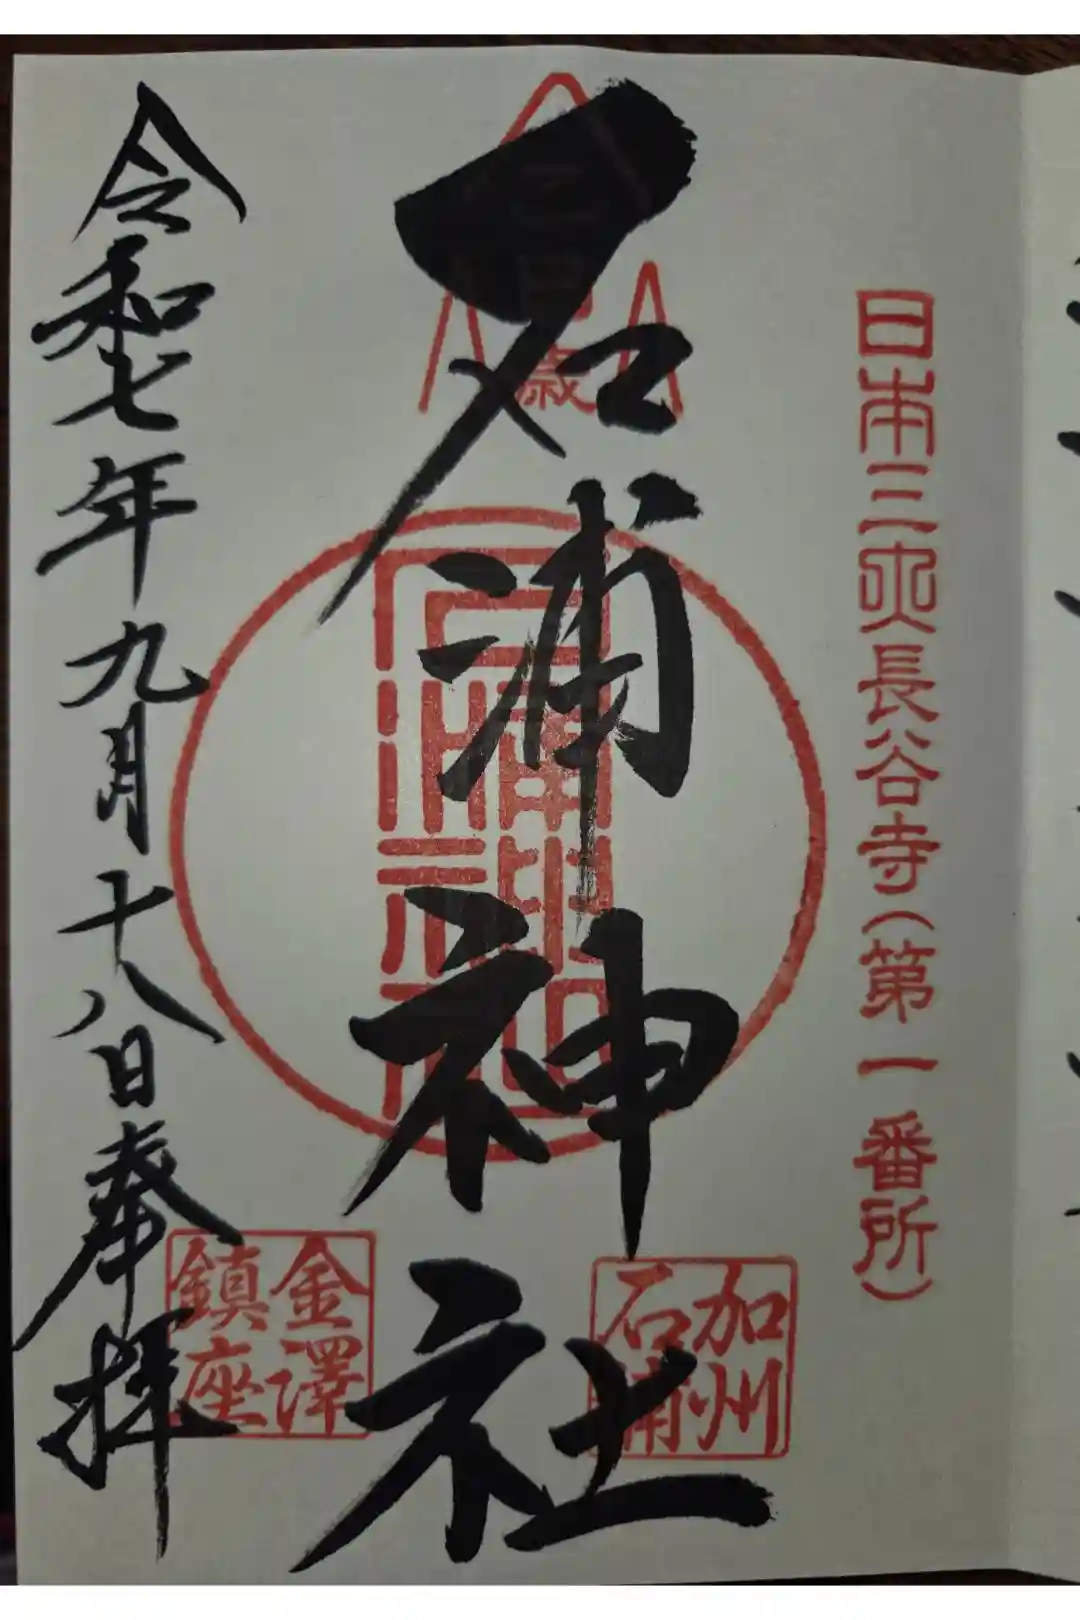 日本三大長谷寺(第一番所)
石浦神社
歳
加州
石浦
金澤
鎮座
令和七年九月十八日奉拝